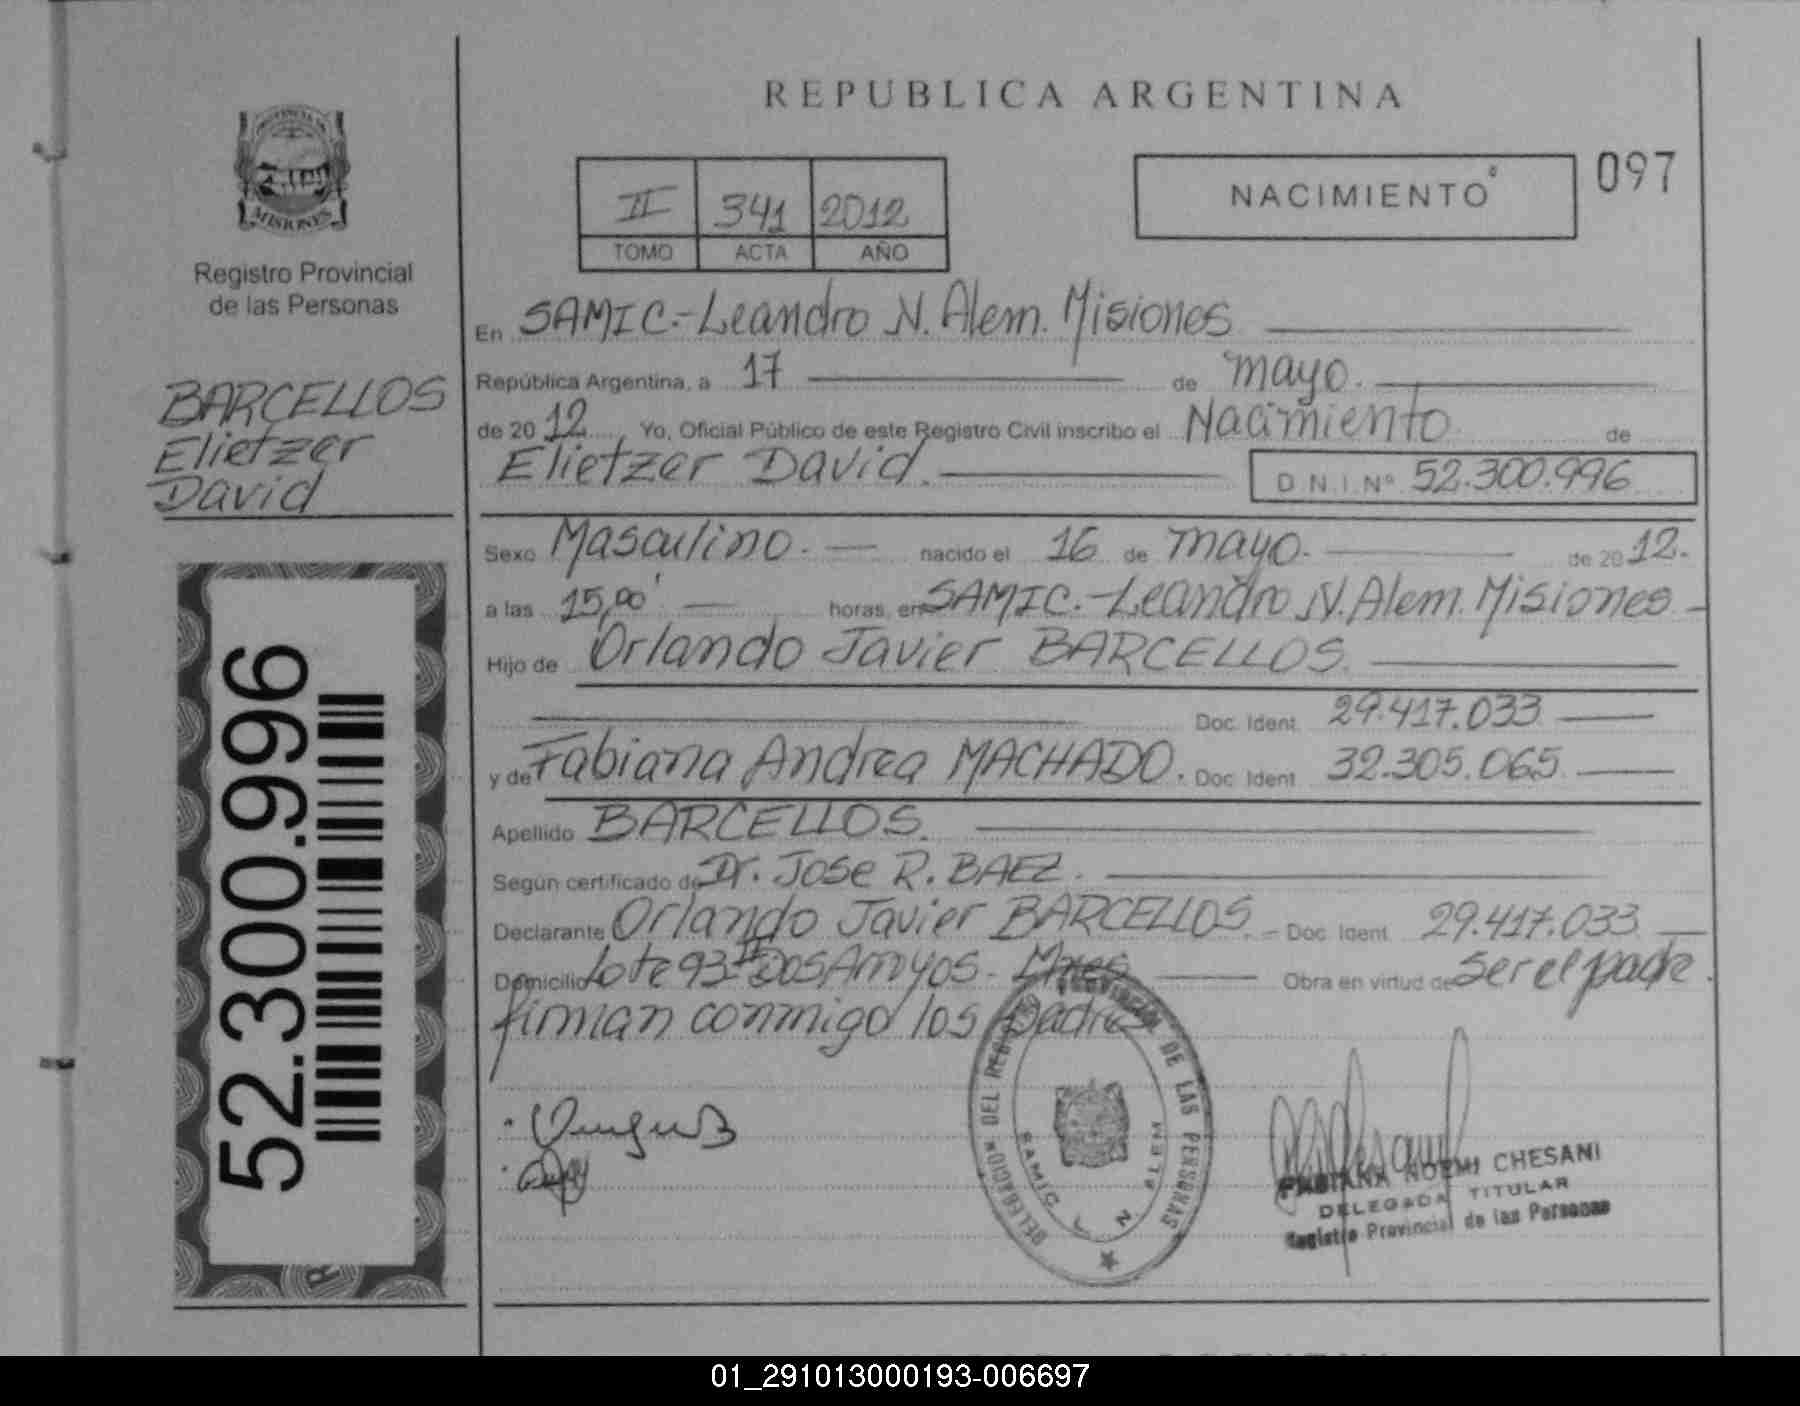 REPUBLICA ARGENTINA
PROVINCIA DE
MISIONES
Registro Provincial
de las Personas
BARCELLOS
Elietzer
David
52.300.996
II 341 2012
TOMO ACTA AÑO
NACIMIENTO
097
En SAMIC.-Leandro N. Alem. Misiones
República Argentina, a 17 de mayo.
de 2012 Yo, Oficial Público de este Registro Civil inscribo el Nacimiento de
Elietzer David. D.N.I.Nº 52.300.996
Sexo Masculino. nacido el 16 de mayo. de 2012.
a las 15,00' horas, en SAMIC.-Leandro N. Alem. Misiones
Hijo de Orlando Javier BARCELLOS.
Doc. Ident. 29.417.033
y de Fabiana Andrea MACHADO. Doc. Ident. 32.305.065
Apellido BARCELLOS.
Según certificado de Dr. Jose R. BAEZ.
Declarante Orlando Javier BARCELLOS. - Doc. Ident. 29.417.033
Domicilio Lote 93 Dos Arroyos - Mnes Obra en virtud de ser el padre.
firman conmigo los padres
DELEGACION DEL REGISTRO PROVINCIAL DE LAS PERSONAS
SAMIC L. N. ALEM
FABIANA NOEMI CHESANI
DELEGADA TITULAR
Registro Provincial de las Personas
01_291013000193-006697